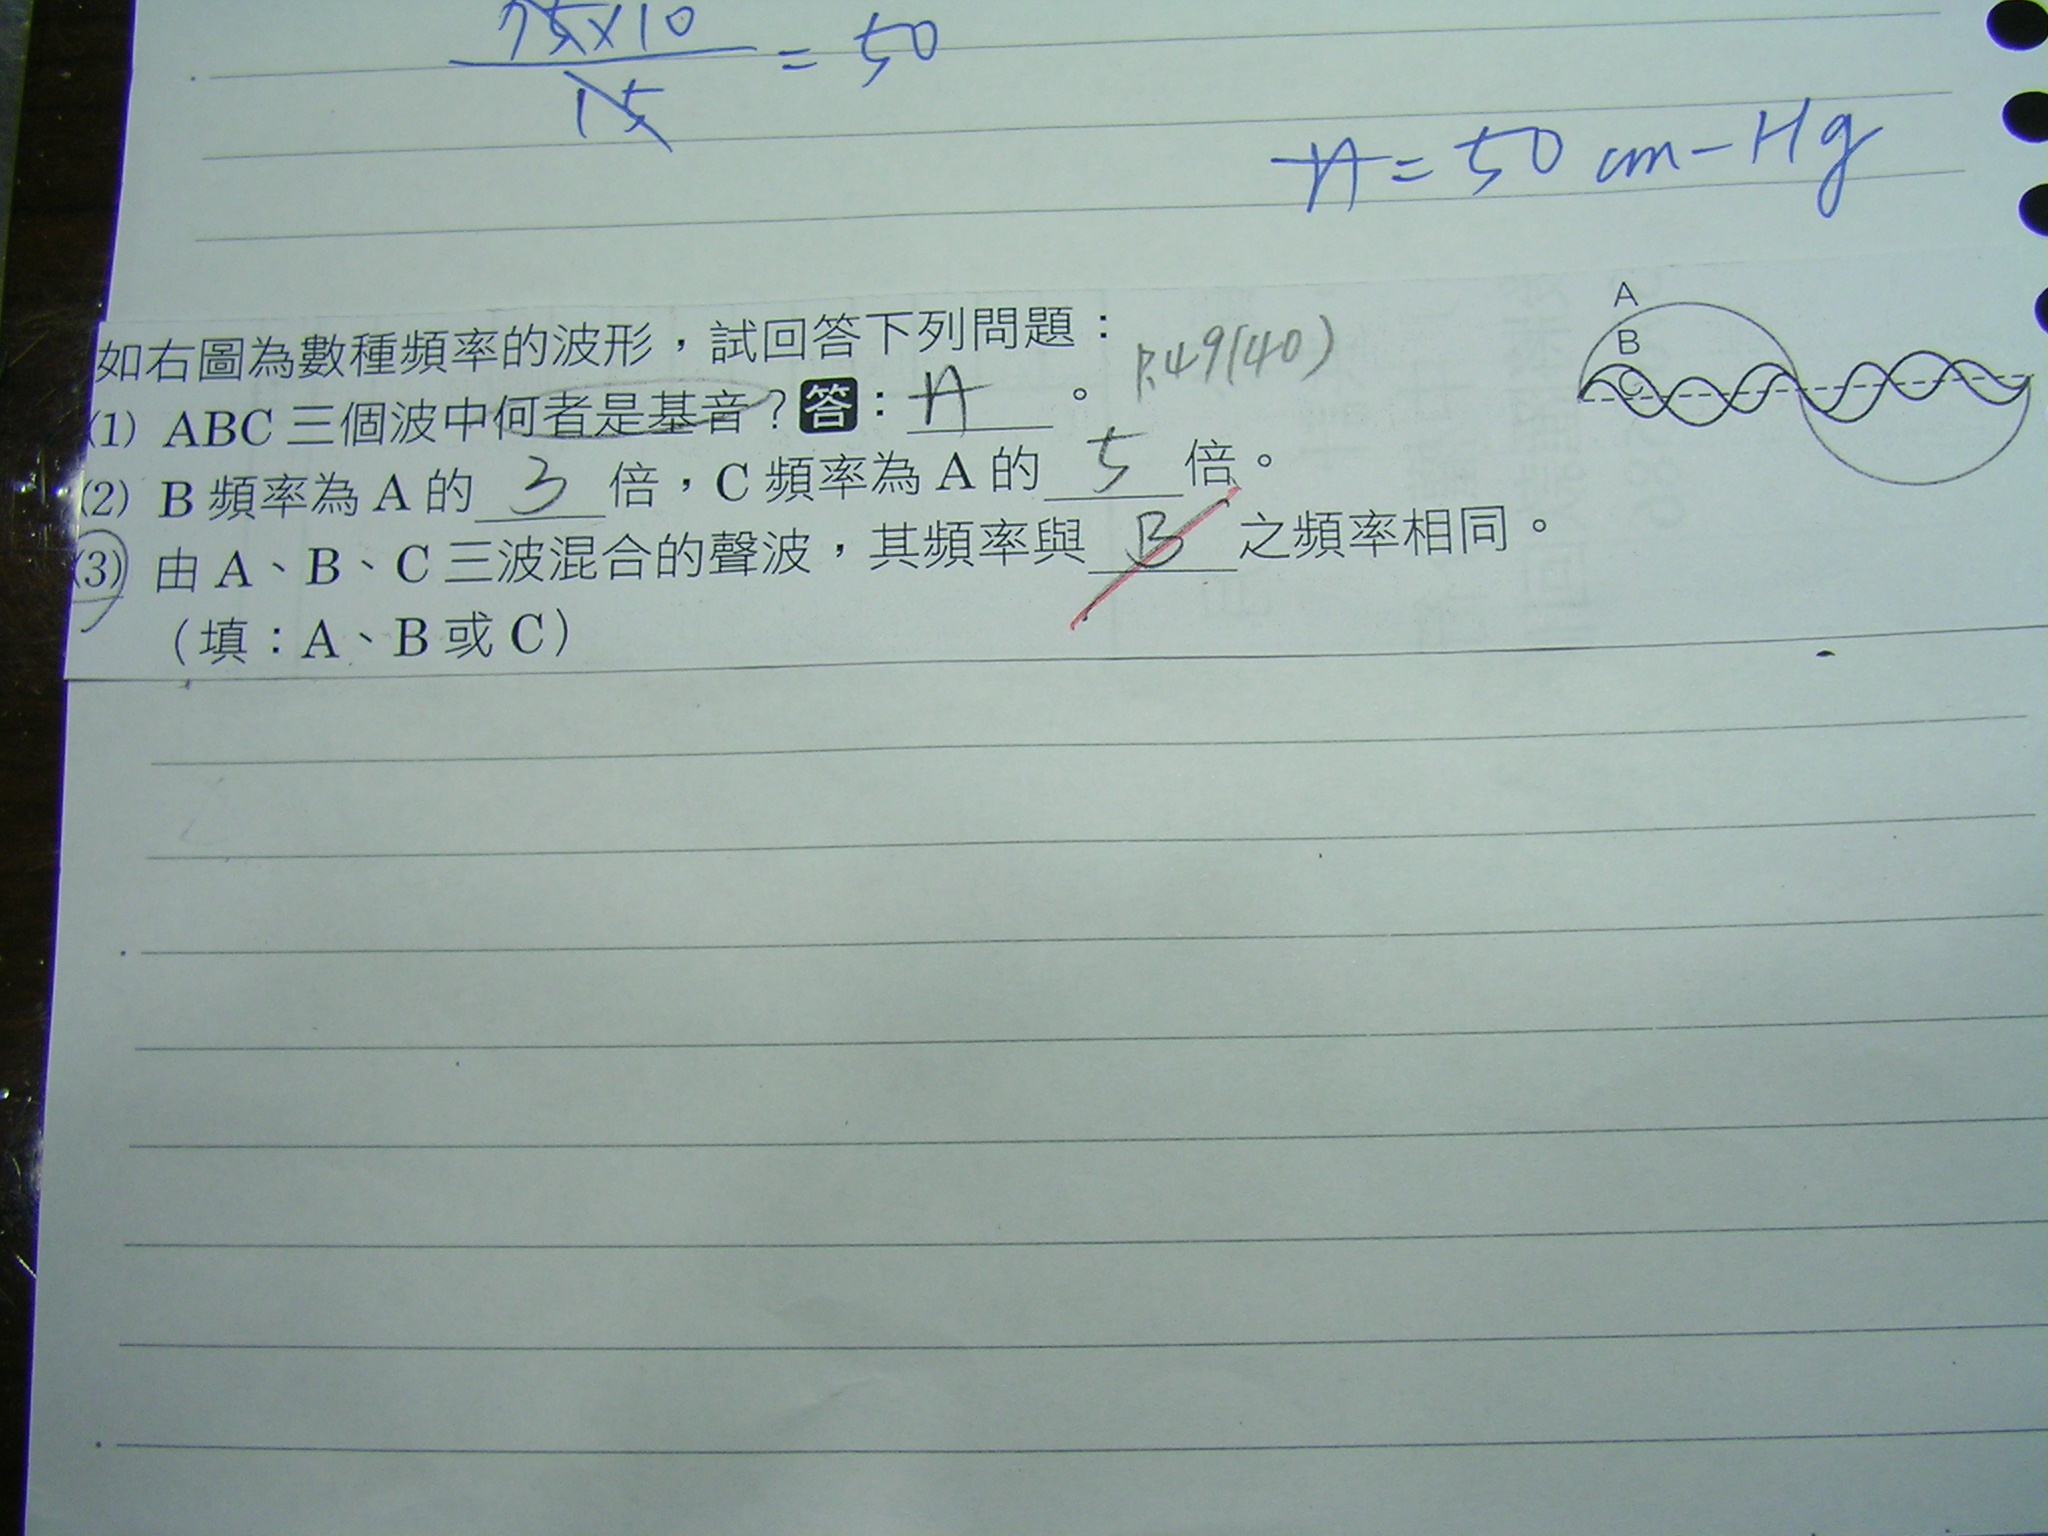 75×10
= 50
15
A = 50 cm-Hg
如右圖為數種頻率的波形，試回答下列問題：
P.49(40)
(1) ABC 三個波中何者是基音？答：A。
(2) B 頻率為 A 的 3 倍，C 頻率為 A 的 5 倍。
(3) 由 A、B、C 三波混合的聲波，其頻率與 B 之頻率相同。
（填：A、B 或 C）
A
B
C